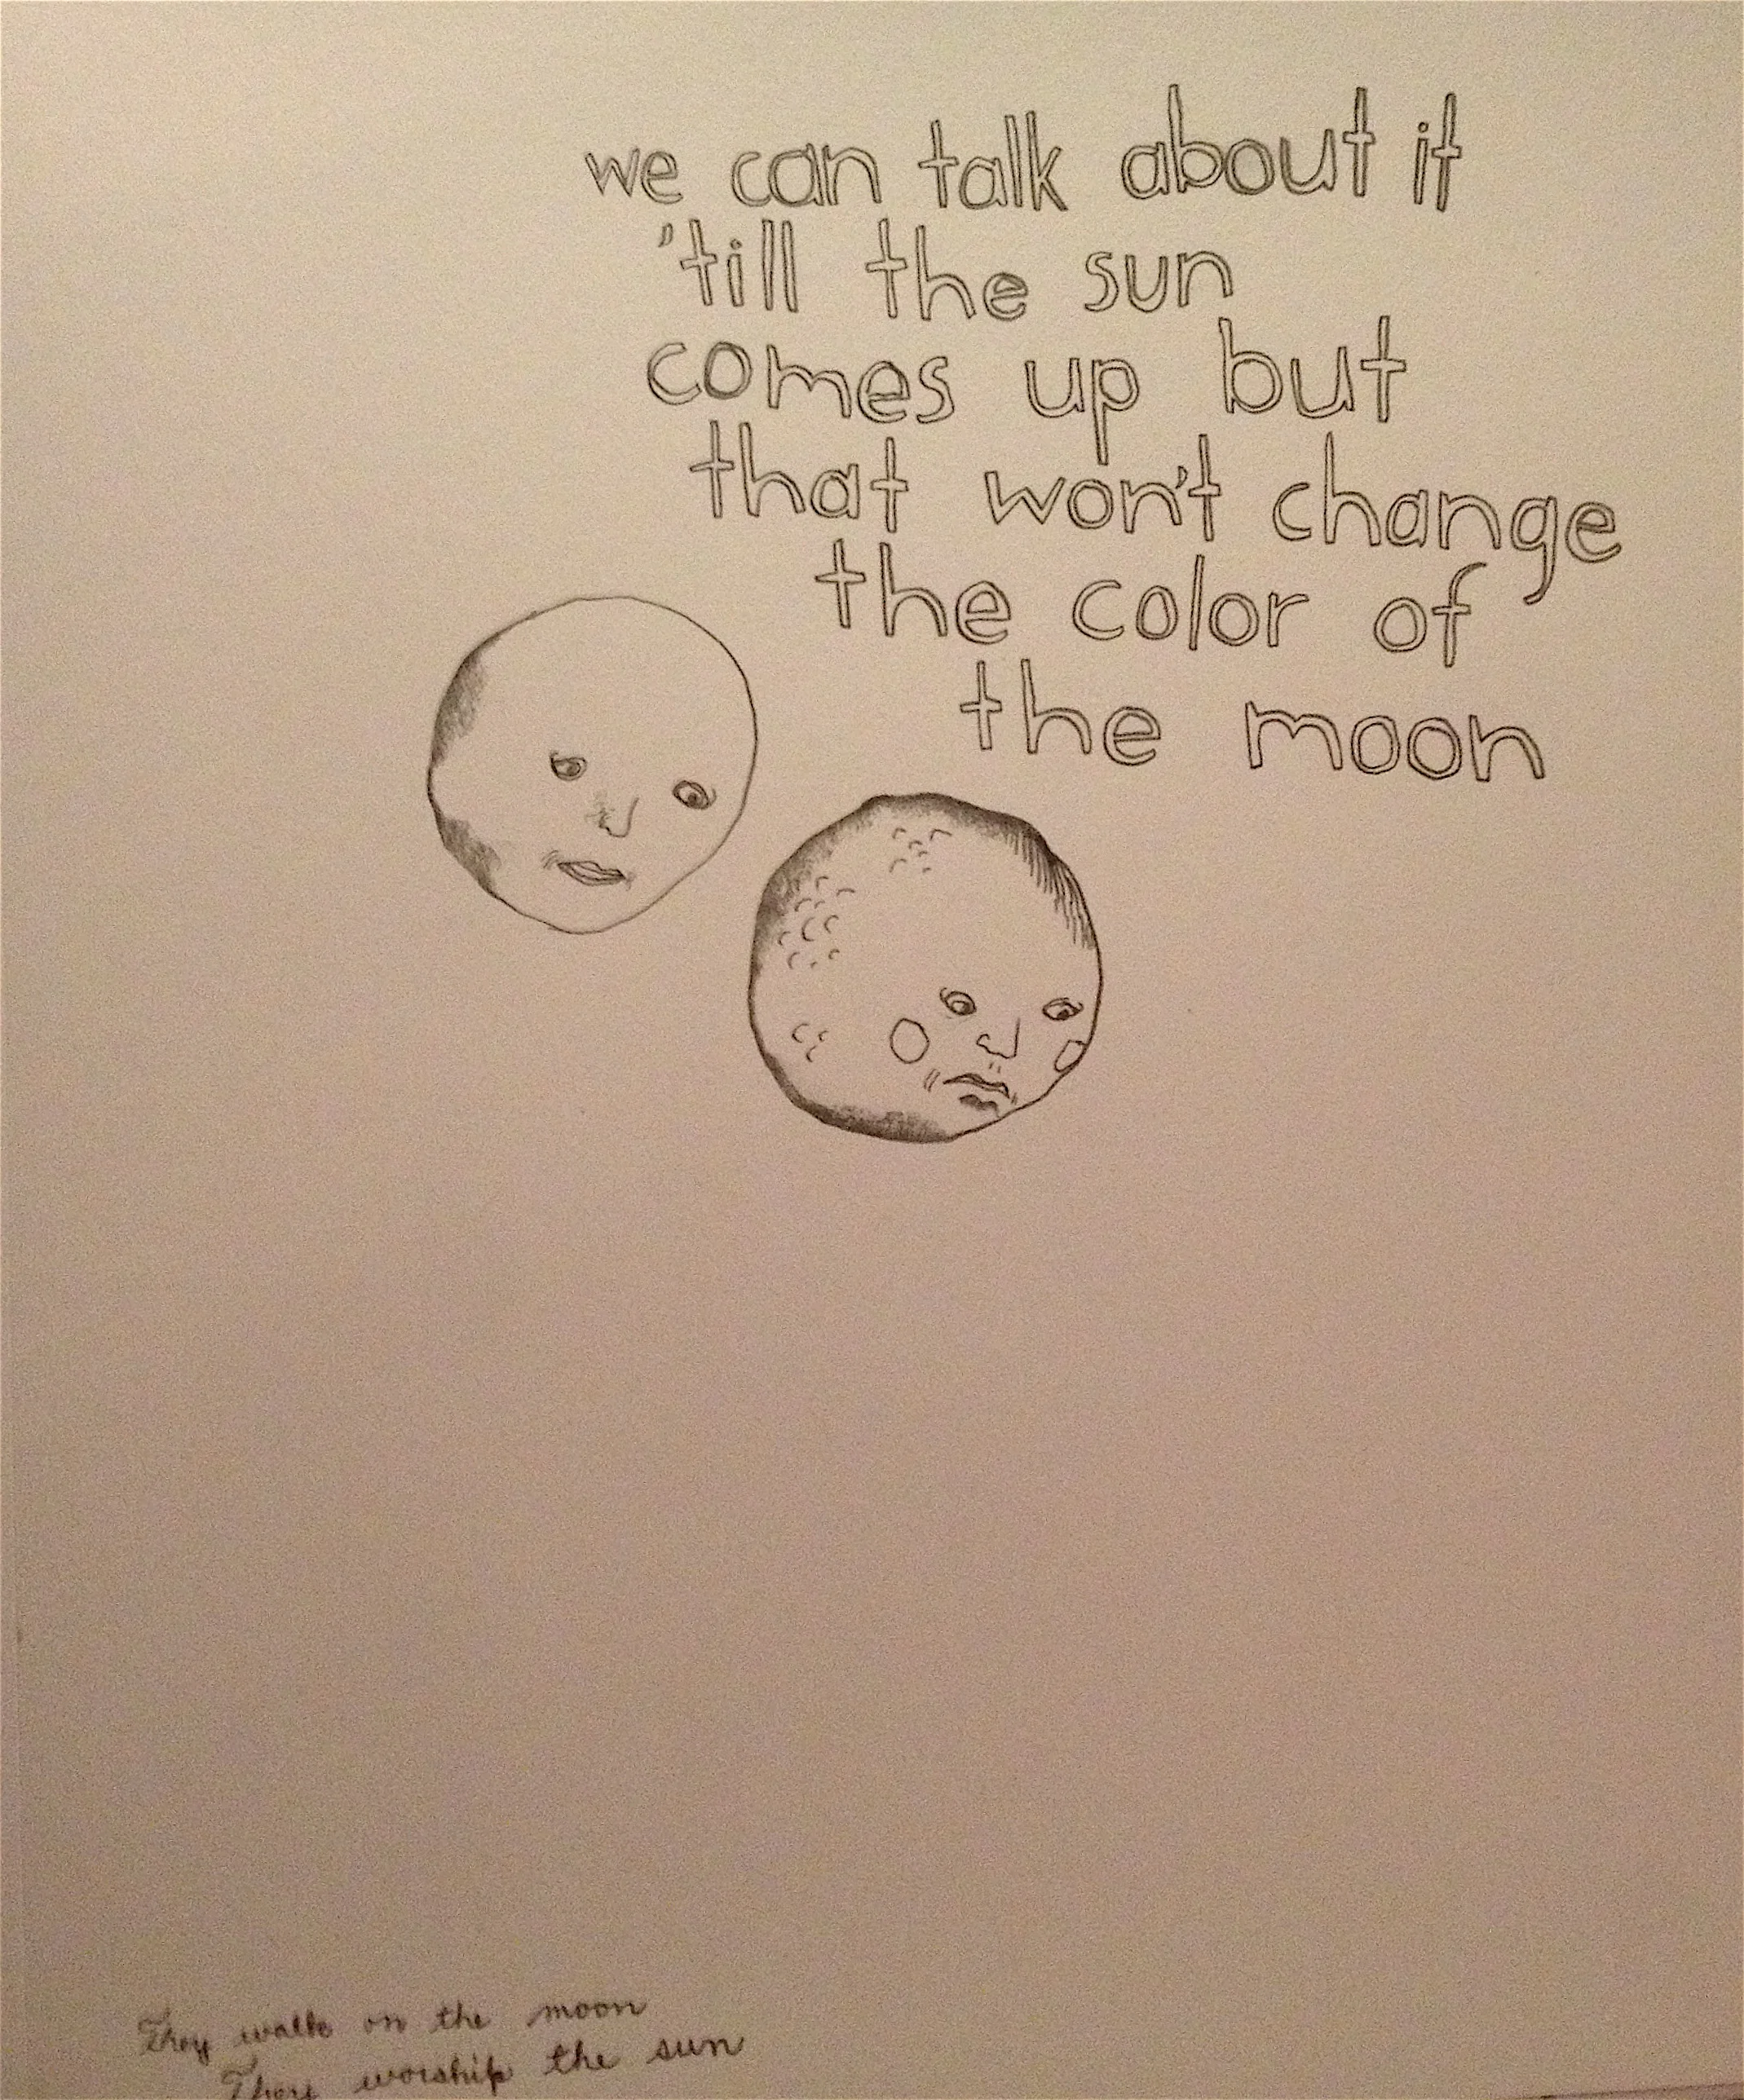 we can talk about it
'till the sun
comes up but
that won't change
the color of
the moon
They walk on the moon
They worship the sun